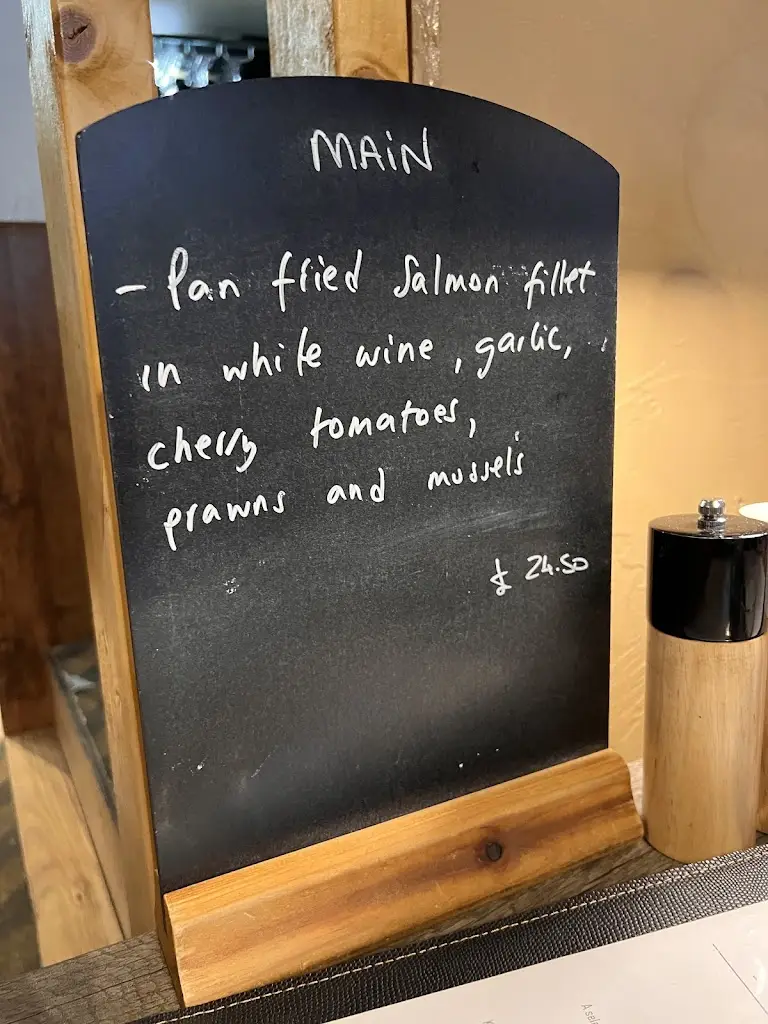 MAIN
- Pan fried Salmon fillet
in white wine, garlic,
cherry tomatoes,
prawns and mussels
£ 24.50